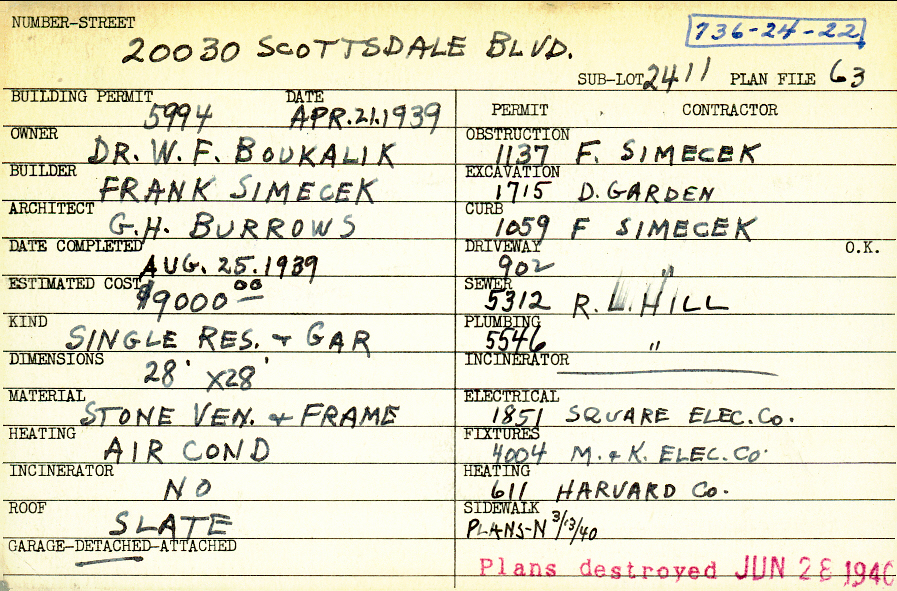 NUMBER-STREET
20030 SCOTTSDALE BLVD.
736-24-22
SUB-LOT 2411 PLAN FILE 63
BUILDING PERMIT DATE
5994 APR.21.1939
OWNER
DR. W. F. BOUKALIK
BUILDER
FRANK SIMECEK
ARCHITECT
G.H. BURROWS
DATE COMPLETED
AUG. 25. 1939
ESTIMATED COST
$9000 00
KIND
SINGLE RES. + GAR
DIMENSIONS
28' X28'
MATERIAL
STONE VEN. + FRAME
HEATING
AIR COND
INCINERATOR
NO
ROOF
SLATE
GARAGE-DETACHED-ATTACHED
PERMIT CONTRACTOR
OBSTRUCTION
1137 F. SIMECEK
EXCAVATION
1715 D. GARDEN
CURB
1059 F SIMECEK
DRIVEWAY O.K.
902 "
SEWER
5312 R. HILL
PLUMBING
5546 "
INCINERATOR
ELECTRICAL
1851 SQUARE ELEC. CO.
FIXTURES
4004 M. + K. ELEC. CO.
HEATING
611 HARVARD CO.
SIDEWALK
PLANS-N 3/13/40
Plans destroyed JUN 28 1940